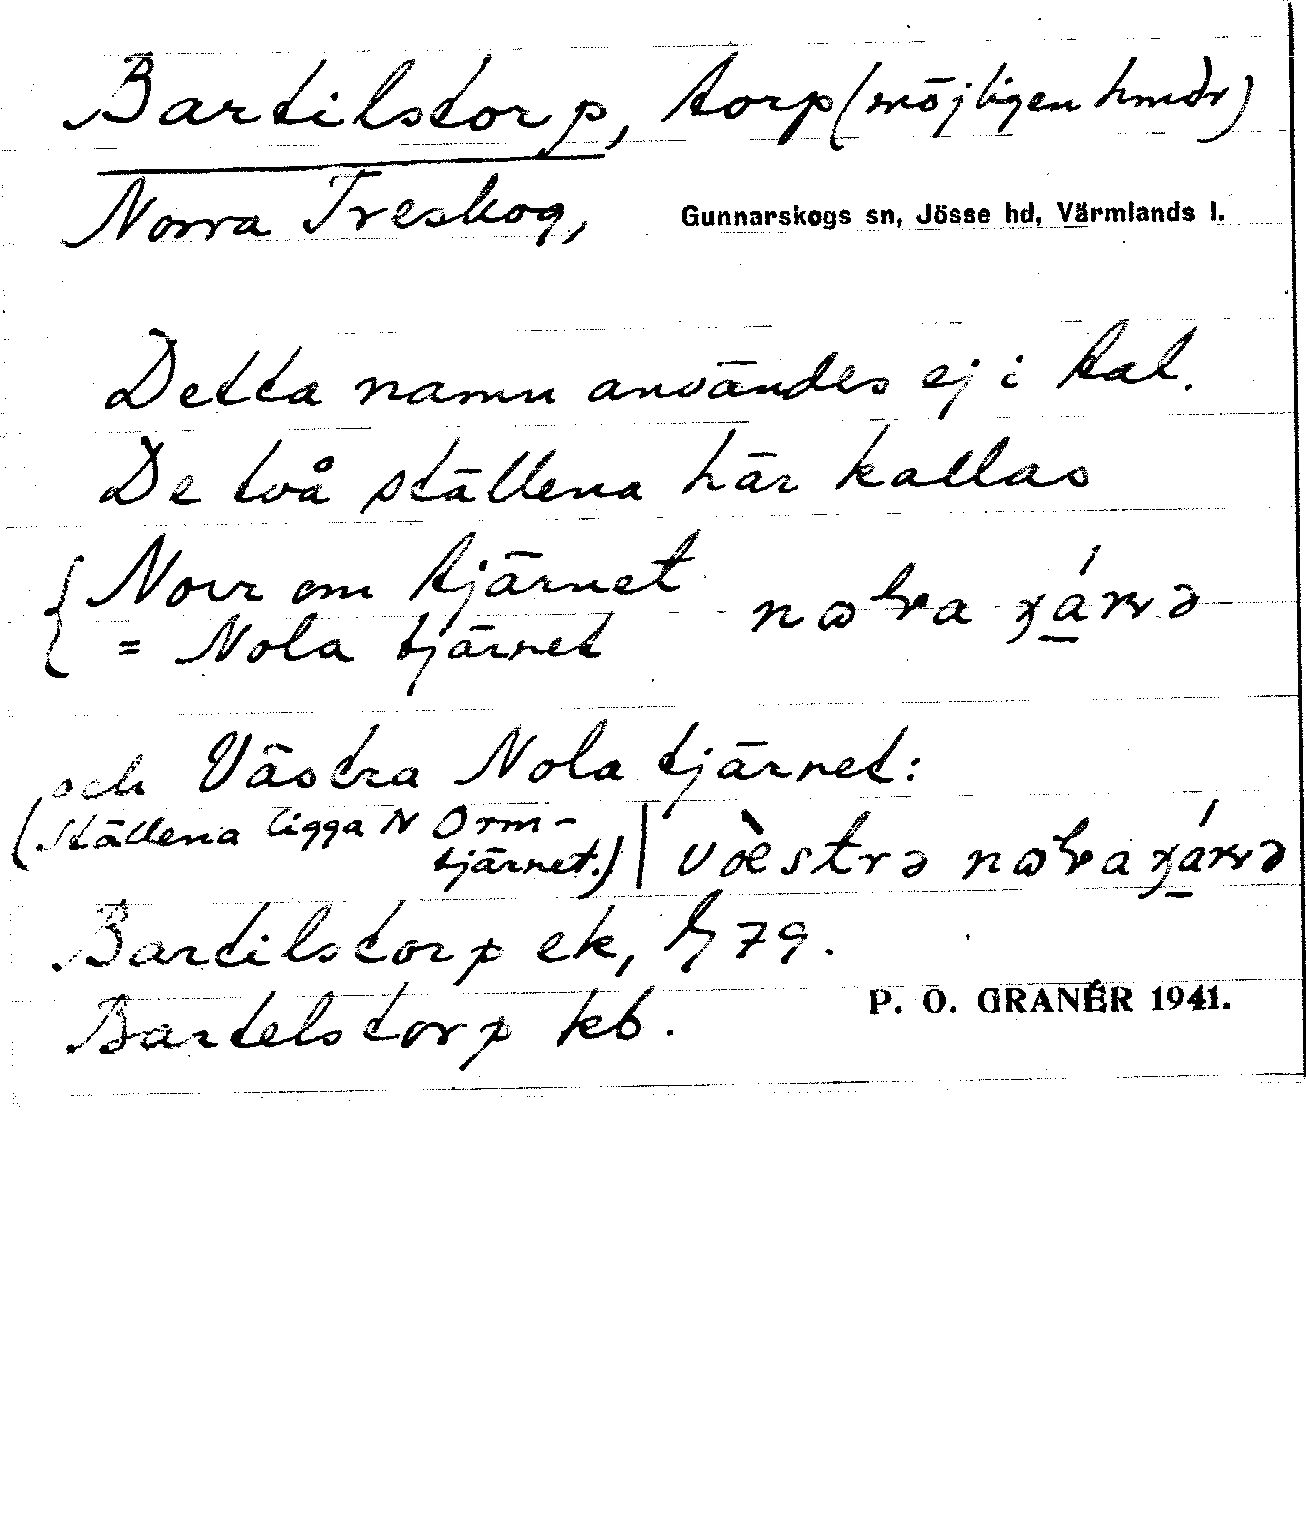 Bartilstorp, torp (möjligen hmdr)
Norra Treskog, Gunnarskogs sn, Jösse hd, Värmlands l.
Detta namn användes ej i tal.
De två ställena här kallas
Norr om tjärnet
= Nola tjärnet
och Västra Nola tjärnet:
(Ställena ligga N Orm-
tjärnet.)
Bartilstorp ek, G 79.
Bartelstorp kb.
P. O. GRANÉR 1941.